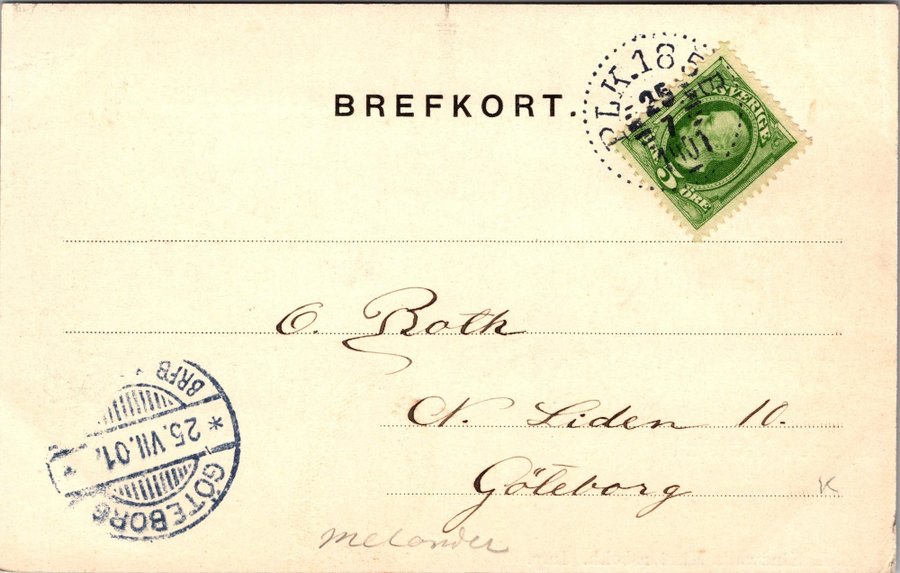 BREFKORT.
PLK.185
25
7
1901
SVERIGE
5
ÖRE
O. Both
N. Liden 10.
Göteborg
K
Melander
BRFB
* 25.VII.01. *
GÖTEBORG